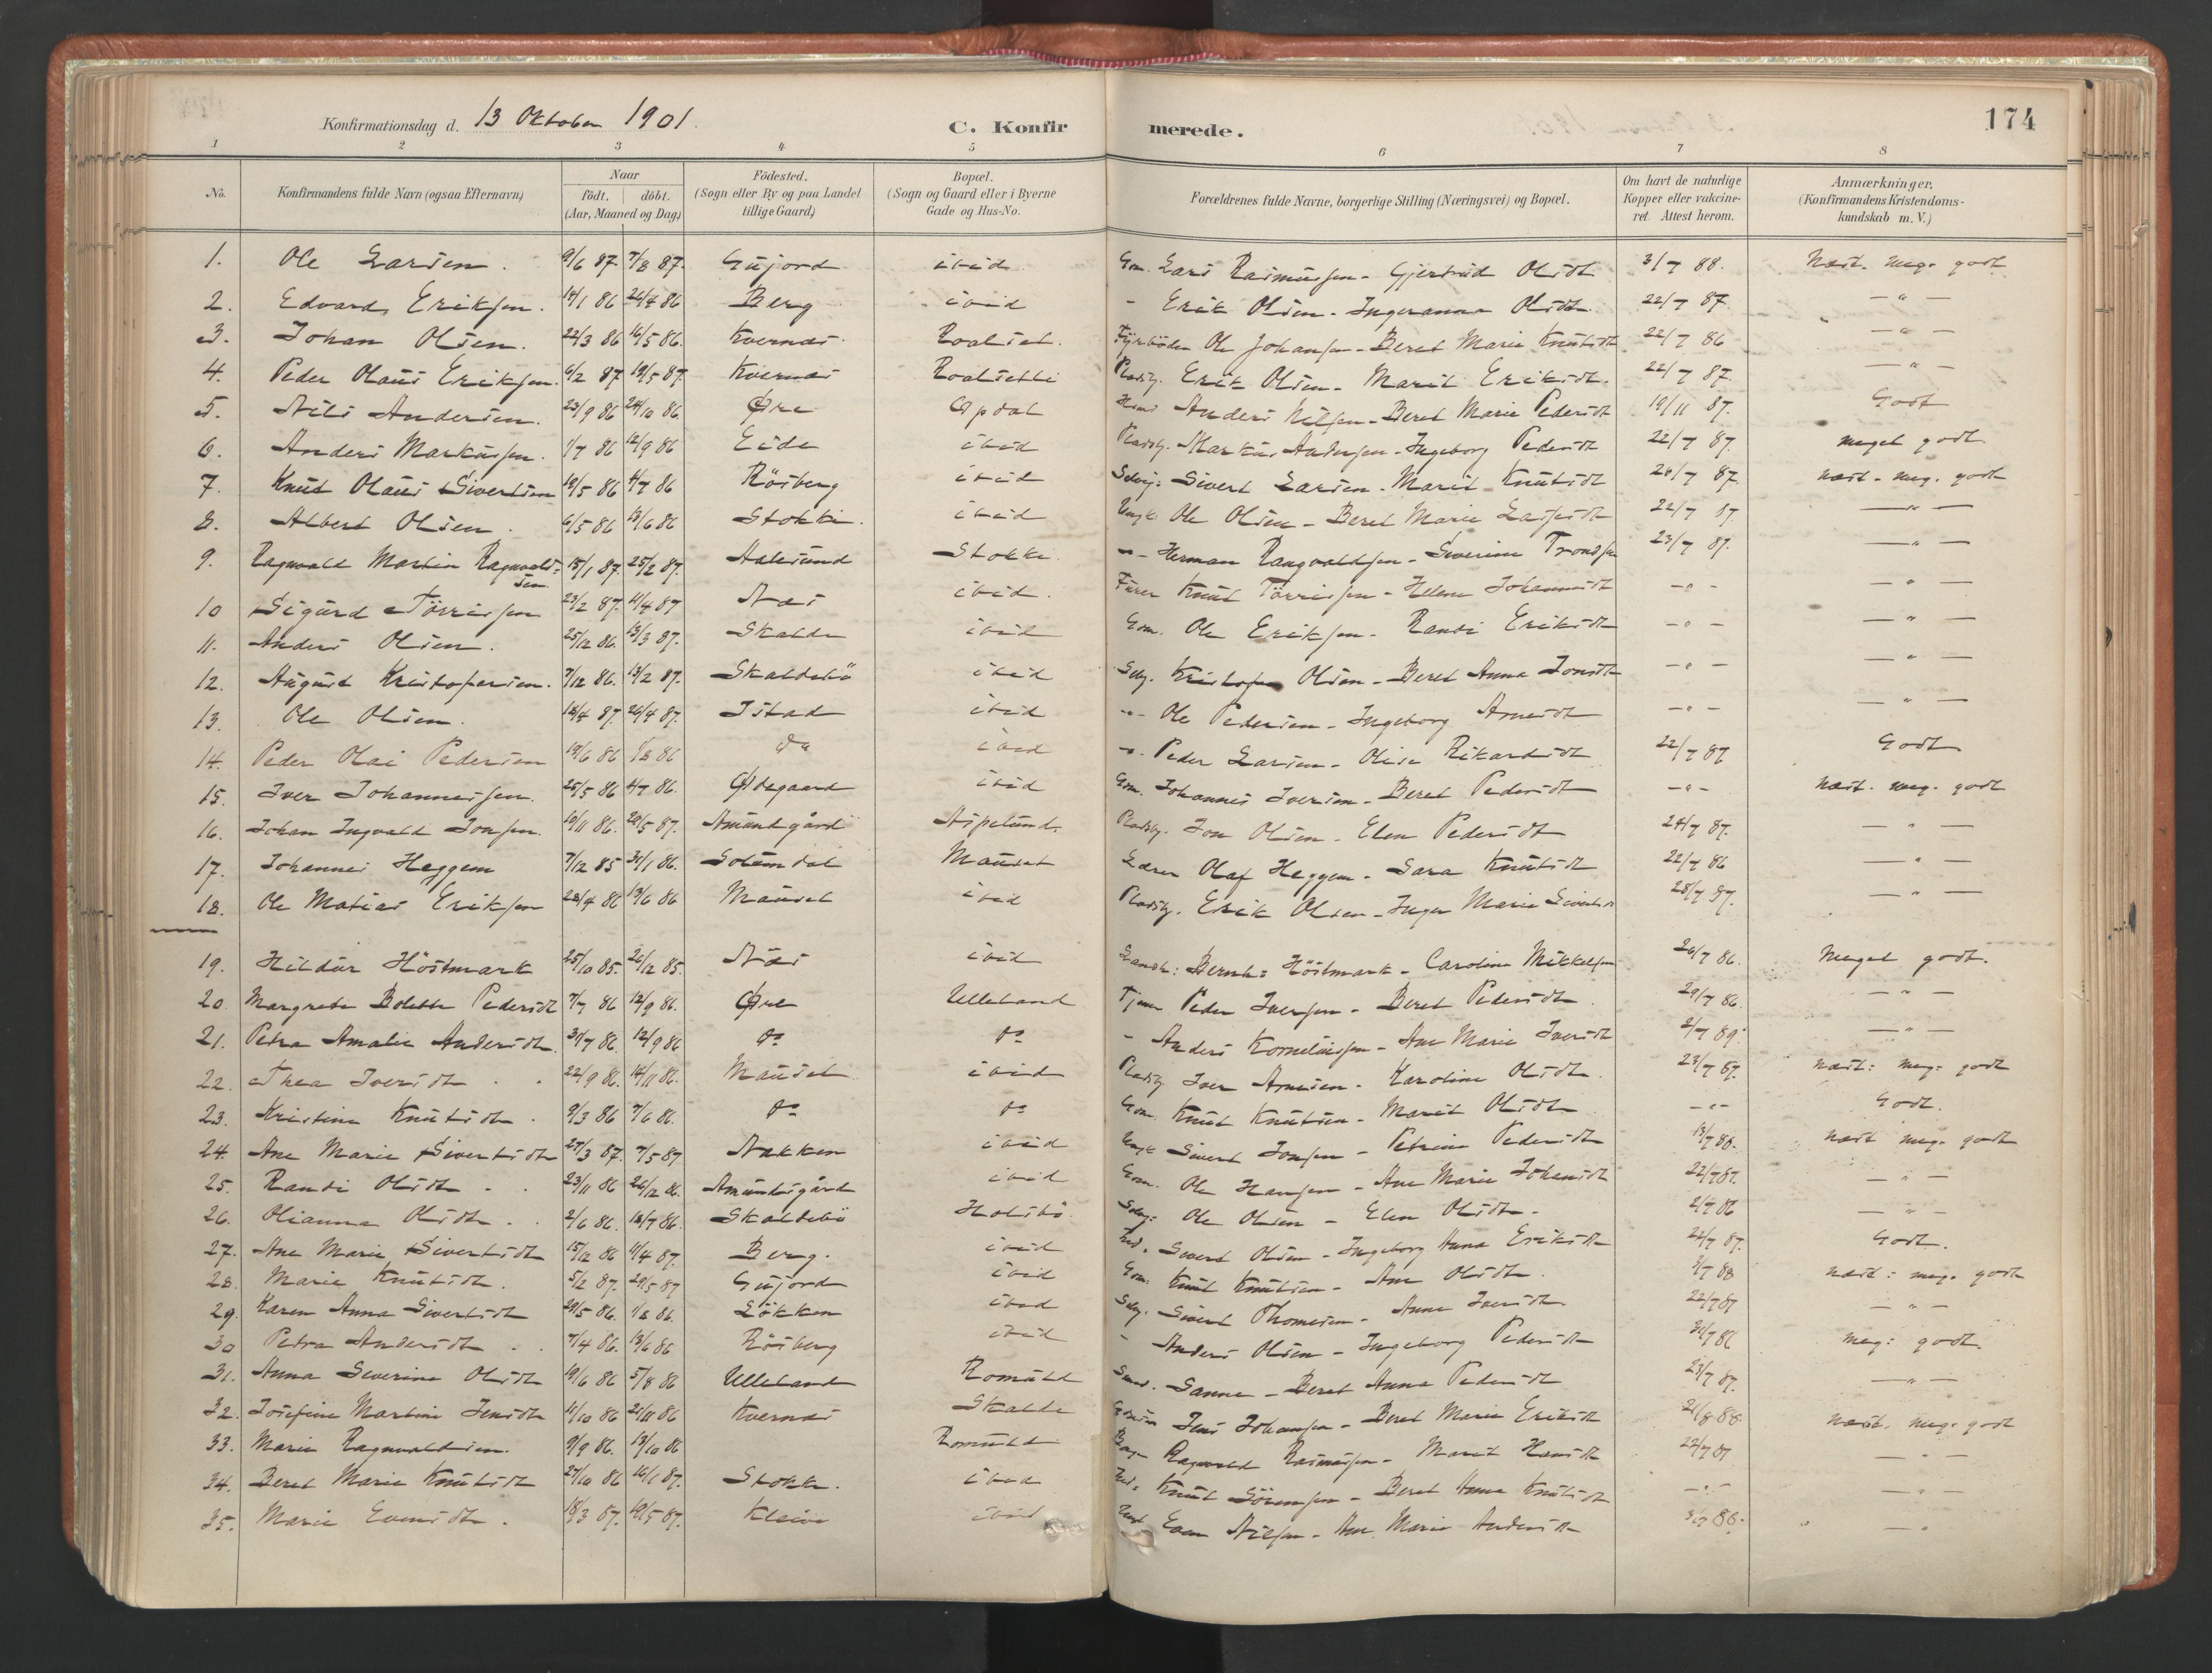 Konfirmationsdag d. 13 Oktober 1901. C. Konfirmerede. 174
1 2 3 4 5 6 7 8
No. Konfirmandens fulde Navn (ogsaa Efternavn) Naar født. døbt. (Aar, Maaned og Dag) Fødested. (Sogn eller By og paa Landet tillige Gaard) Bopæl. (Sogn og Gaard eller i Byerne Gade og Hus-No. Forældrenes fulde Navne, borgerlige Stilling (Næringsvei) og Bopæl. Om havt de naturlige Kopper eller vakcineret. Attest herom. Anmærkninger. (Konfirmandens Kristendomskundskab m. V.)
1. Ole Larsen. 9/6 87. 7/8 87. Gujord ibid Gm. Lars Rasmussen - Gjertrud Olsdt 3/7 88. Næst. meg. godt
2. Edvard Eriksen. 14/1 86 26/4 86 Berg ibid - Erik Olsen - Ingeranna Olsdt. 22/7 87. — " —
3. Johan Olsen. 22/3 86 16/5 86. Kvernæs. Roalset. Fyrbøder Ole Johansen - Beret Marie Knutsdt 22/7 86 — " —
4. Peder Olaus Eriksen. 6/2 87 19/5 87. Kvernæs Roalsetli Pladsby. Erik Olsen - Marit Eriksdt. 22/7 87. — " —
5. Nils Andersen. 23/9 86 24/10 86 Øre Opdal Anders Nilsen - Beret Marie Pedersdt 19/11 87. Godt
6. Anders Markussen. 1/7 86 12/9 86 Eide ibid Pladsby. Markus Andersen - Ingeborg Pedersdt 22/7 87. meget godt
7. Knut Olaus Sivertsen 19/5 86 4/7 86 Rösberg ibid Selvej: Sivert Larsen - Marit Knutsdt 28/7 87. næst. meg. godt
8. Albert Olsen. 6/5 86 13/6 86 Stokke. ibid Ungk. Ole Olsen - Beret Marie Larsdt 22/7 87. — " —
9. Ragnvald Martin Ragnvaldsen 15/1 87. 25/2 87. Aalesund Stokke. -"- Herman Rangvaldsen - Severine Trondsen 23/7 87. — " —
10 Sigurd Törrissen 23/2 87. 11/4 87 Næs ibid. Fører Knut Törrissen - Helene Johannesdt - " - — " —
11. Anders Olsen. 25/12 86. 13/3 87. Skalde ibid Gm. Ole Eriksen - Randi Eriksdt - " - — " —
12. August Kristofersen. 7/12 86. 13/2 87. Skaldebö ibid Selvj. Kristofer Olsen - Beret Anna Jonsdt - " - — " —
13. Ole Olsen. 12/4 87. 26/4 87. Istad ibid -"- Ole Pedersen - Ingeborg Arnesdt - " - — " —
14. Peder Olai Pedersen 19/6 86 1/8 86 do ibid -"- Peder Larsen - Olise Rikardsdt 22/7 87 Godt
15. Iver Johannessen. 25/5 86 4/7 86. Ødegaard ibid Gm. Johannes Iversen - Beret Pedersdt - " - næst. meg. godt
16. Johan Ingvald Jonsen. 10/11 86. 20/5 87. Amundgård Aspelund. Pladsby. Jon Olsen - Elen Pedersdt 24/7 87. — " —
17. Johannes Heggem 7/12 85 31/1 86. Solemdal Mauset Lærer Olaf Heggem - Sara Knutsdt 22/7 86 — " —
18. Ole Matias Eriksen 28/4 86 13/6 86 Mauset ibid Pladsby. Erik Olsen - Inger Marie Sivertsdt 28/7 87. — " —
19. Hildur Höstmark 25/10 85. 26/12 85. Næs ibid Landh: Bernh: Höstmark - Caroline Mikkelsen 20/7 86. Meget godt.
20. Margrete Bolette Pedersdt 7/7 86 12/9 86. Øre Ulleland Tjener Peder Iversen - Beret Pedersdt. 29/7 86. — " —
21. Petra Amalie Andersdt. 31/7 86. 12/9 86 do do - Anders Korneliussen - Ane Marie Iversdt 2/7 89. — " —
22. Thea Iversdt . . 22/9 86. 14/11 86. Mauset ibid Pladsby Iver Arnesen - Karoline Olsdt. 23/7 87. næst: meg: godt
23. Kristine Knutsdt . 9/3 86 7/6 86. do do Gm. Knut Knutsen - Marit Olsdt - " - Godt.
24. Ane Marie Sivertsdt 27/3 87. 7/5 87 Nakken ibid Ungk Sivert Jonsen - Petrine Pedersdt 13/7 88. næst meg. godt
25. Randi Olsdt . . 23/11 86 26/12 86. Amundsgård ibid Gm. Ole Hansen - Ane Marie Johansdt 22/7 87. — " —
26. Olianna Olsdt . . 2/6 86. 18/7 86. Skaldebö Holsbö. Selvj: Ole Olsen - Elen Olsdt - 2/7 86 — " —
27. Ane Marie Sivertsdt 15/12 86 11/4 87. Berg. ibid Ind. Sivert Olsen - Ingeborg Anna Eriksdt 22/7 87. Godt.
28. Marie Knutsdt. 5/2 87. 29/5 87 Gujord ibid Gm: Knut Knutsen - Ane Olsdt. 3/7 88 næst: meg. godt
29. Karen Anna Sivertsdt 29/5 86. 1/8 86. Lökken ibid Selvj. Sivert Thomesen - Anne Iversdt. 22/7 87 — " —
30 Petra Andersdt . . 7/4 86. 13/6 86 Rösberg ibid - Anders Olsen - Ingeborg Pedersdt 31/7 86 meg: godt.
31. Anna Severine Olsdt 19/6 86 5/8 86 Ulleland Romuld Sanne - Beret Anna Pedersdt 23/7 87. — " —
32. Josefine Martine Jensdt 11/10 86 21/11 86 Kvernæs Skalde Jens Johansen - Beret Marie Eriksdt 21/8 88. næst. meg. godt
33. Marie Ragnvaldsen. 9/9 86. 13/10 86 Romuld Ragnvald Rasmussen - Marit Hansdt 22/7 87 — " —
34. Beret Marie Knutsdt 27/10 86 16/1 87. Stokke. ibid Ind. Knut Sörensen - Beret Anna Knutsdt - " - — " —
35. Marie Evensdt . 18/3 87. 19/5 87. Kleive ibid Even Nilsen - Ane Marie Andersdt — " —